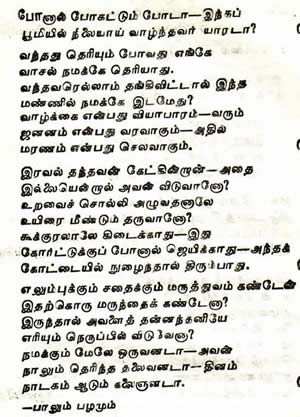 போனால் போகட்டும் போடா—இந்தப்
பூமியில் நிலையாய் வாழ்ந்தவர் யாரடா?
வந்தது தெரியும் போவது எங்கே
வாசல் நமக்கே தெரியாது.
வந்தவரெல்லாம் தங்கிவிட்டால் இந்த
மண்ணில் நமக்கே இடமேது?
வாழ்க்கை என்பது வியாபாரம்—வரும்
ஜனனம் என்பது வரவாகும்—அதில்
மரணம் என்பது செலவாகும்.
இரவல் தந்தவன் கேட்கின்றான்—அதை
இல்லையென்றால் அவன் விடுவானோ?
உறவைச் சொல்லி அழுவதனாலே
உயிரை மீண்டும் தருவானோ?
கூக்குரலாலே கிடைக்காது—இது
கோர்ட்டுக்குப் போனால் ஜெயிக்காது—அந்தக்
கோட்டையில் நுழைந்தால் திரும்பாது.
எலும்புக்கும் சதைக்கும் மருத்துவம் கண்டேன்
இதற்கொரு மருந்தைக் கண்டேனா?
இருந்தால் அவளைத் தன்னந்தனியே
எரியும் நெருப்பில் விடுவேனா?
நமக்கும் மேலே ஒருவனடா—அவன்
நாலும் தெரிந்த தலைவனடா—தினம்
நாடகம் ஆடும் கலைஞனடா.
—பாலும் பழமும்